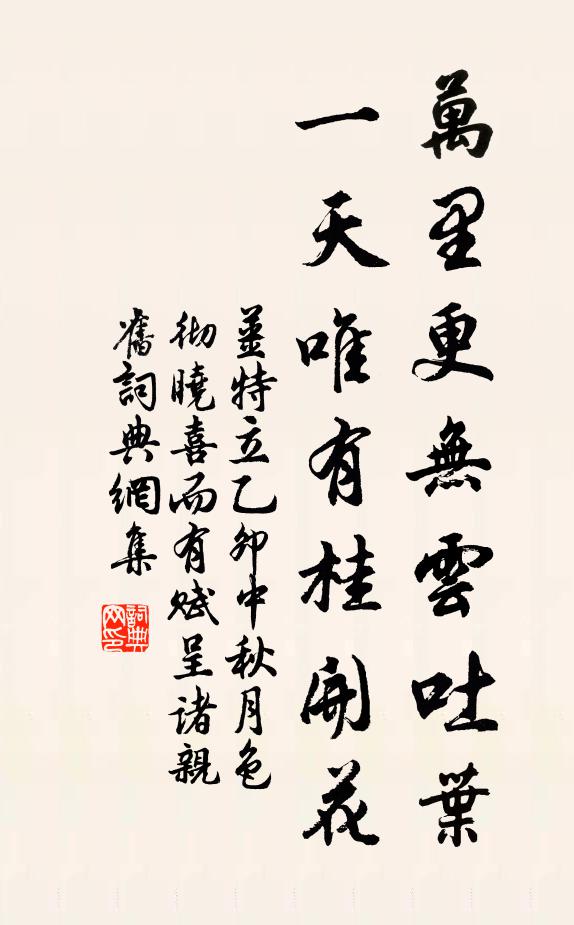 萬里更無雲吐葉
一天唯有桂開花
姜特立乙卯中秋月色
彻曉喜而有赋呈诸親
舊詞典網集
詞典
网印